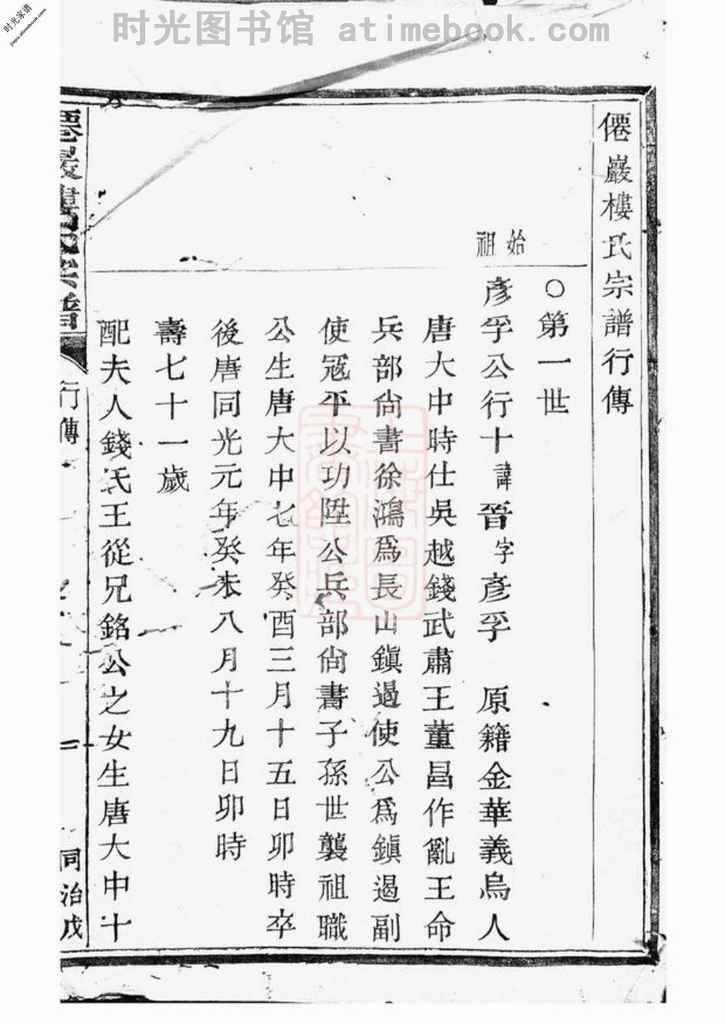 时光图书馆 atimebook.com
时光家谱
僊巖樓氏宗譜行傳
○第一世
始祖
彥孚公行十諱晉字彥孚 原籍金華義烏人
唐大中時仕吳越錢武肅王董昌作亂王命
兵部尙書徐鴻爲長山鎭遏使公爲鎭遏副
使冦平以功陞公兵部尙書子孫世襲祖職
公生唐大中七年癸酉三月十五日卯時卒
後唐同光元年癸未八月十九日卯時
壽七十一歲
配夫人錢氏王從兄銘公之女生唐大中十
僊巖樓氏宗譜
行傳
一
同治戊